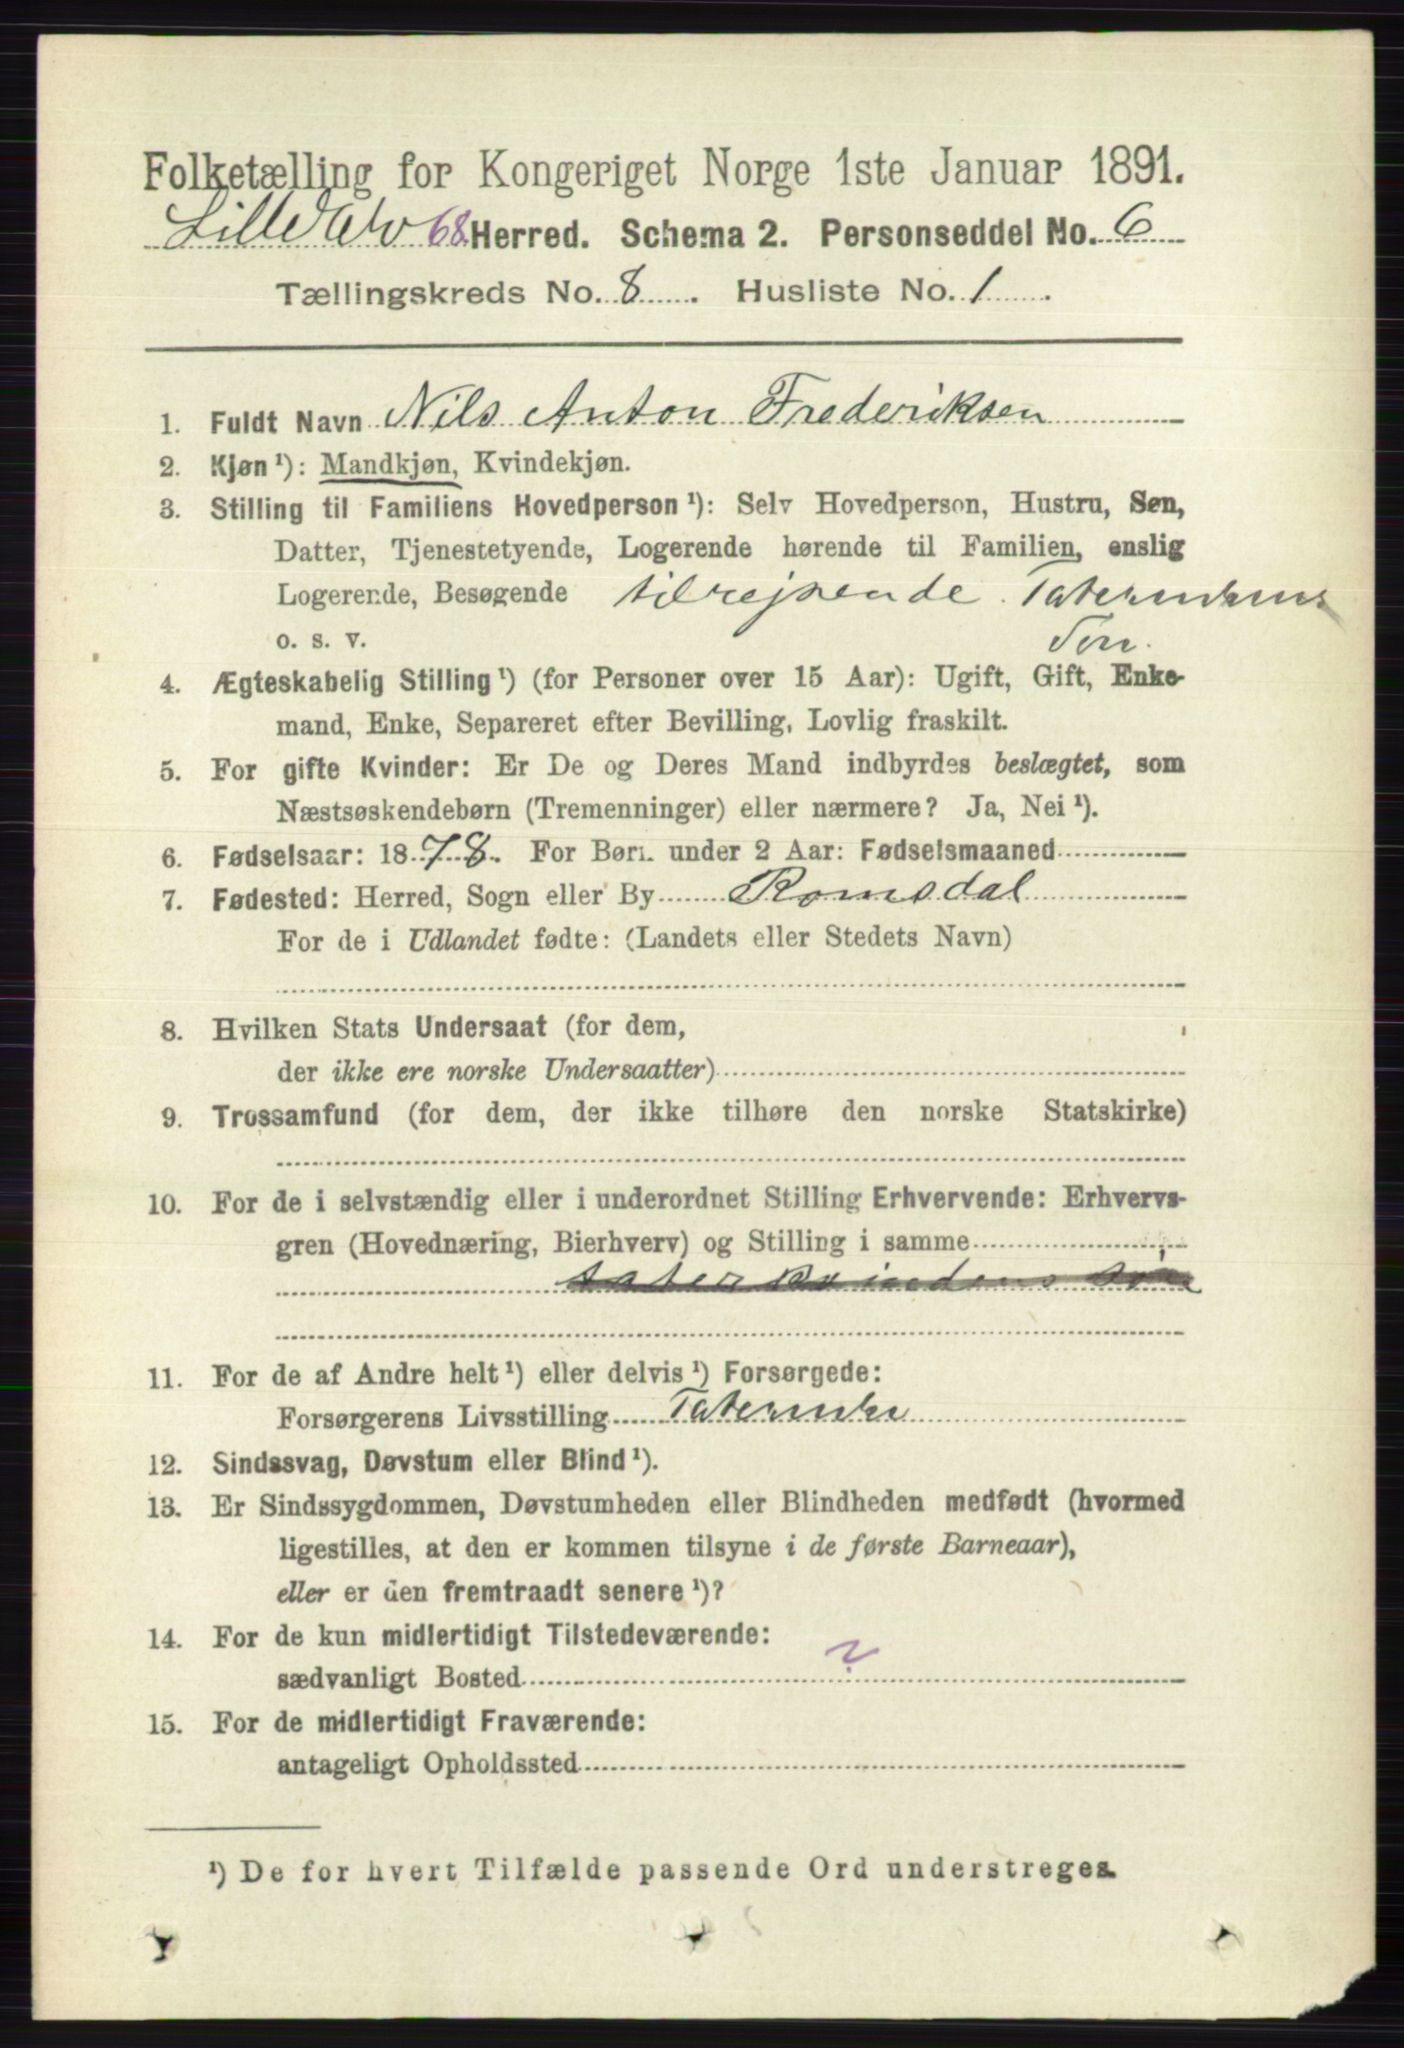 Folketælling for Kongeriget Norge 1ste Januar 1891.
Lille Elv 68 Herred. Schema 2. Personseddel No. 6
Tællingskreds No. 8 . Husliste No. 1 .
1. Fuldt Navn Nils Anton Frederiksen
2. Kjøn ¹): Mandkjøn, Kvindekjøn.
3. Stilling til Familiens Hovedperson ¹): Selv Hovedperson, Hustru, Søn,
Datter, Tjenestetyende, Logerende hørende til Familien, enslig
Logerende, Besøgende tilrejsende
o. s. v. Søn.
4. Ægteskabelig Stilling ¹) (for Personer over 15 Aar): Ugift, Gift, Enke-
mand, Enke, Separeret efter Bevilling, Lovlig fraskilt.
5. For gifte Kvinder: Er De og Deres Mand indbyrdes beslægtet, som
Næstsøskendebørn (Tremenninger) eller nærmere? Ja, Nei ¹).
6. Fødselsaar: 1878. For Børn under 2 Aar: Fødselsmaaned
7. Fødested: Herred, Sogn eller By Romsdal
For de i Udlandet fødte: (Landets eller Stedets Navn)
8. Hvilken Stats Undersaat (for dem,
der ikke ere norske Undersaatter)
9. Trossamfund (for dem, der ikke tilhøre den norske Statskirke)
10. For de i selvstændig eller i underordnet Stilling Erhvervende: Erhvervs-
gren (Hovednæring, Bierhverv) og Stilling i samme
taterkvindens søn
11. For de af Andre helt ¹) eller delvis ¹) Forsørgede:
Forsørgerens Livsstilling
12. Sindssvag, Døvstum eller Blind ¹).
13. Er Sindssygdommen, Døvstumheden eller Blindheden medfødt (hvormed
ligestilles, at den er kommen tilsyne i de første Barneaar),
eller er den fremtraadt senere ¹)?
14. For de kun midlertidigt Tilstedeværende:
sædvanligt Bosted ?
15. For de midlertidigt Fraværende:
antageligt Opholdssted
¹) De for hvert Tilfælde passende Ord understreges.